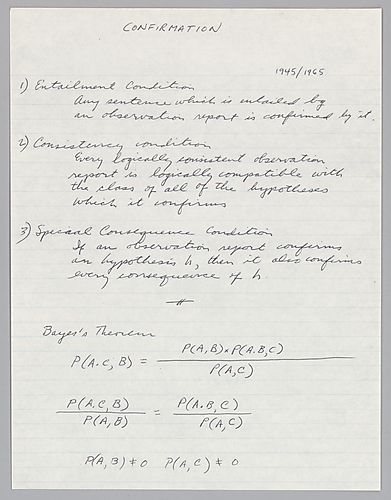 CONFIRMATION
1945/1965
1) Entailment Condition
Any sentence which is entailed by
an observation report is confirmed by it.
2) Consistency condition
Every logically consistent observation
report is logically compatible with
the class of all of the hypotheses
which it confirms
3) Special Consequence Condition
If an observation report confirms
an hypothesis h, then it also confirms
every consequence of h.
Bayes's Theorem
P(A.C, B) = P(A,B)×P(A.B,C)
P(A,C)
P(A.C, B) = P(A.B, C)
P(A,B) P(A,C)
P(A,B) ≠ 0 P(A,C) ≠ 0